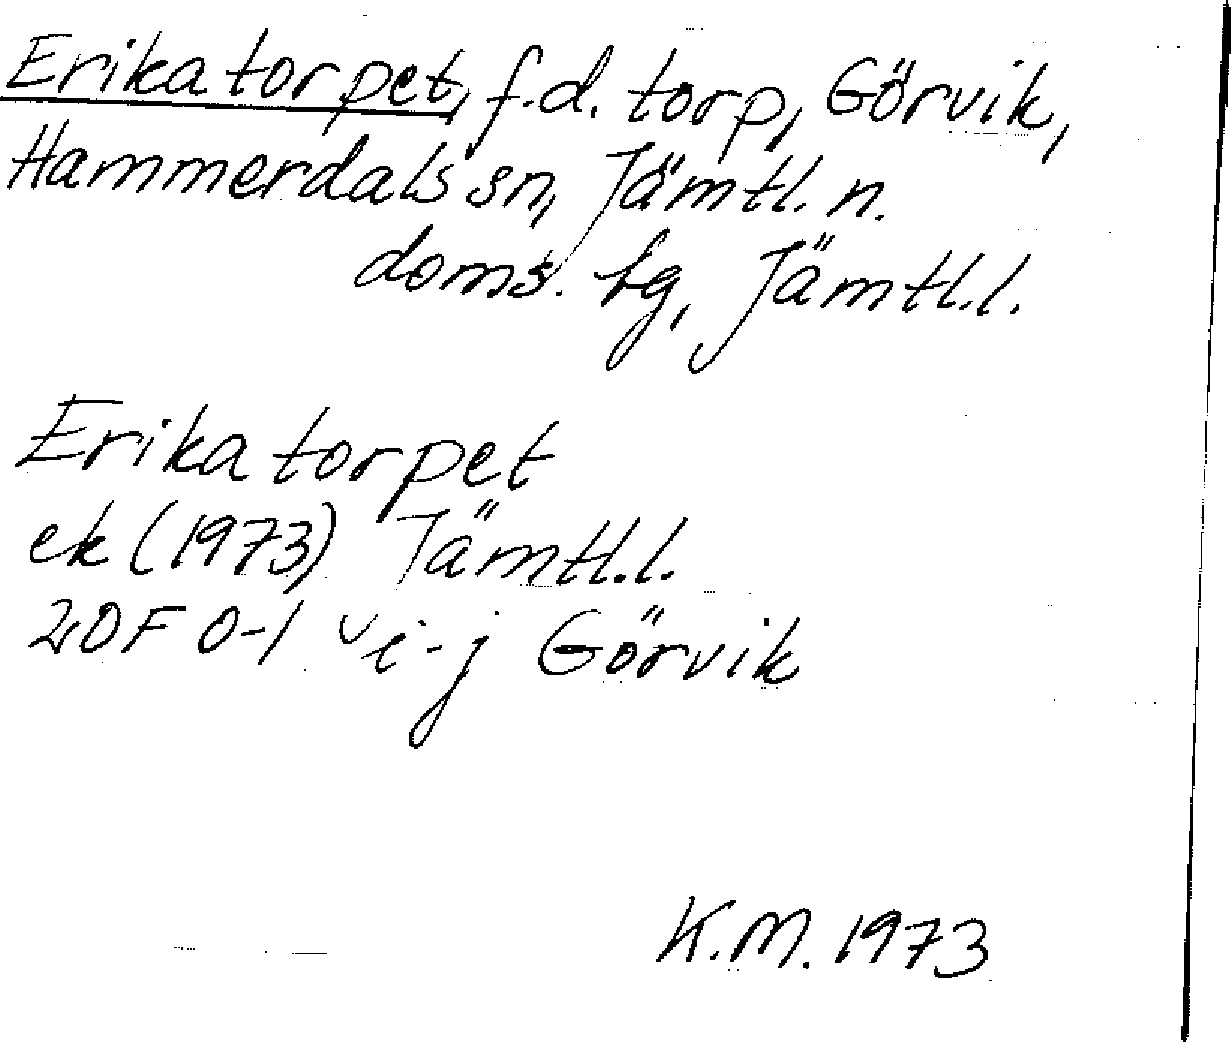 Erikatorpet, f.d. torp, Görvik,
Hammerdals sn, Jämtl. n.
doms. tg, Jämtl.l.
Erikatorpet
ek (1973) Jämtl.l.
20F 0-1 i-j Görvik
K.M. 1973